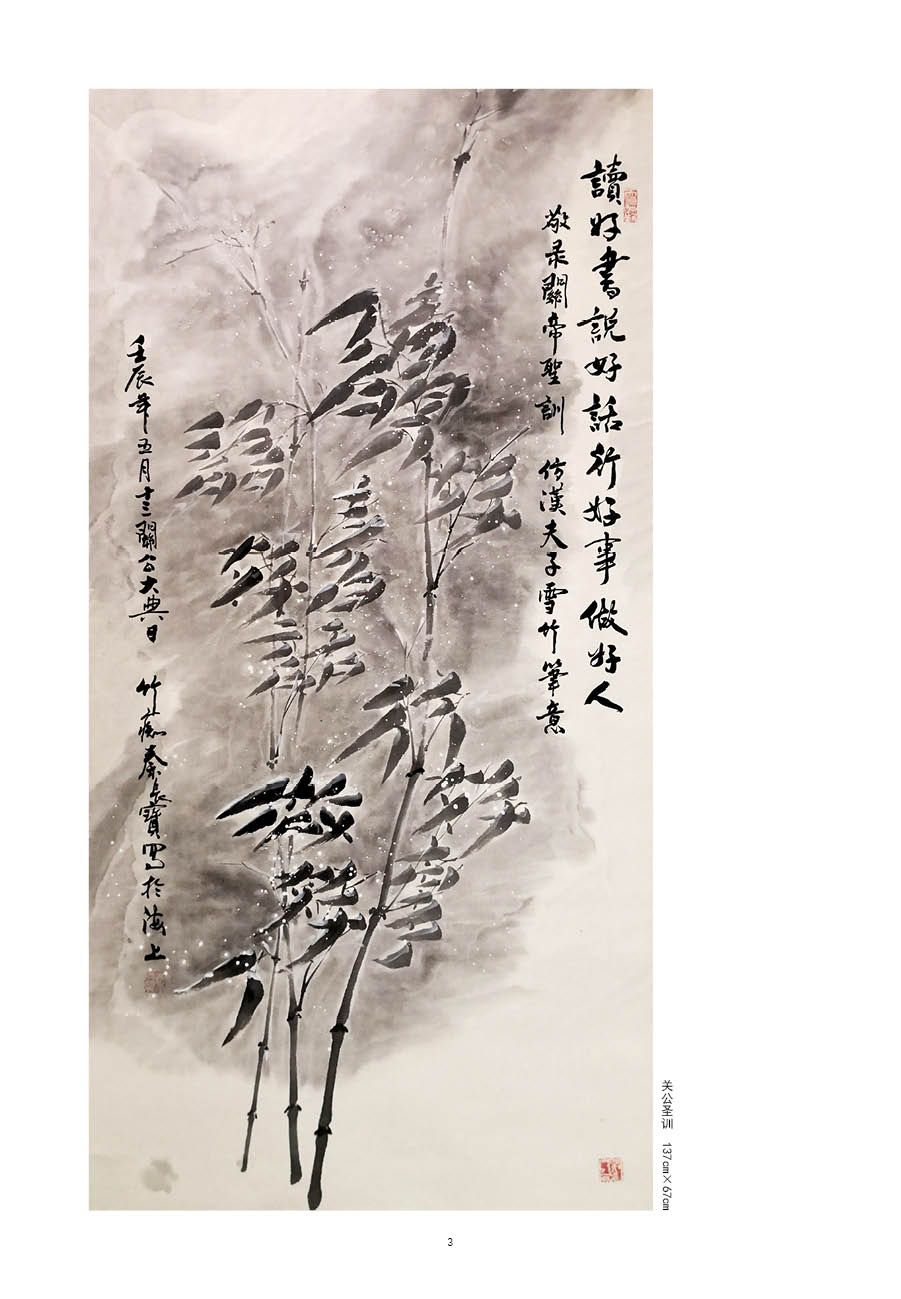 讀好書說好話行好事做好人
敬录關帝聖訓 仿漢夫子雪竹筆意
壬辰年五月十三關公大典日 竹癡秦長寶寫於海上
关公圣训 137cm×67cm
3